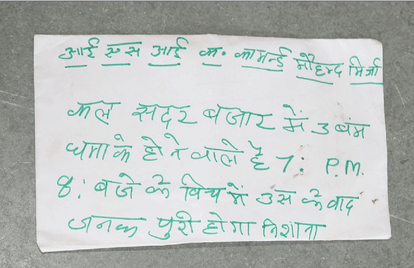 आई एस आई क. कामर्न्ड मौहम्द मिर्जा
कल सदर बजार में 3 बंम
धमाके होने वाले है 7: P.M.
8: बजे के विच में उस के वाद
जनक पुरी होगा निशाना